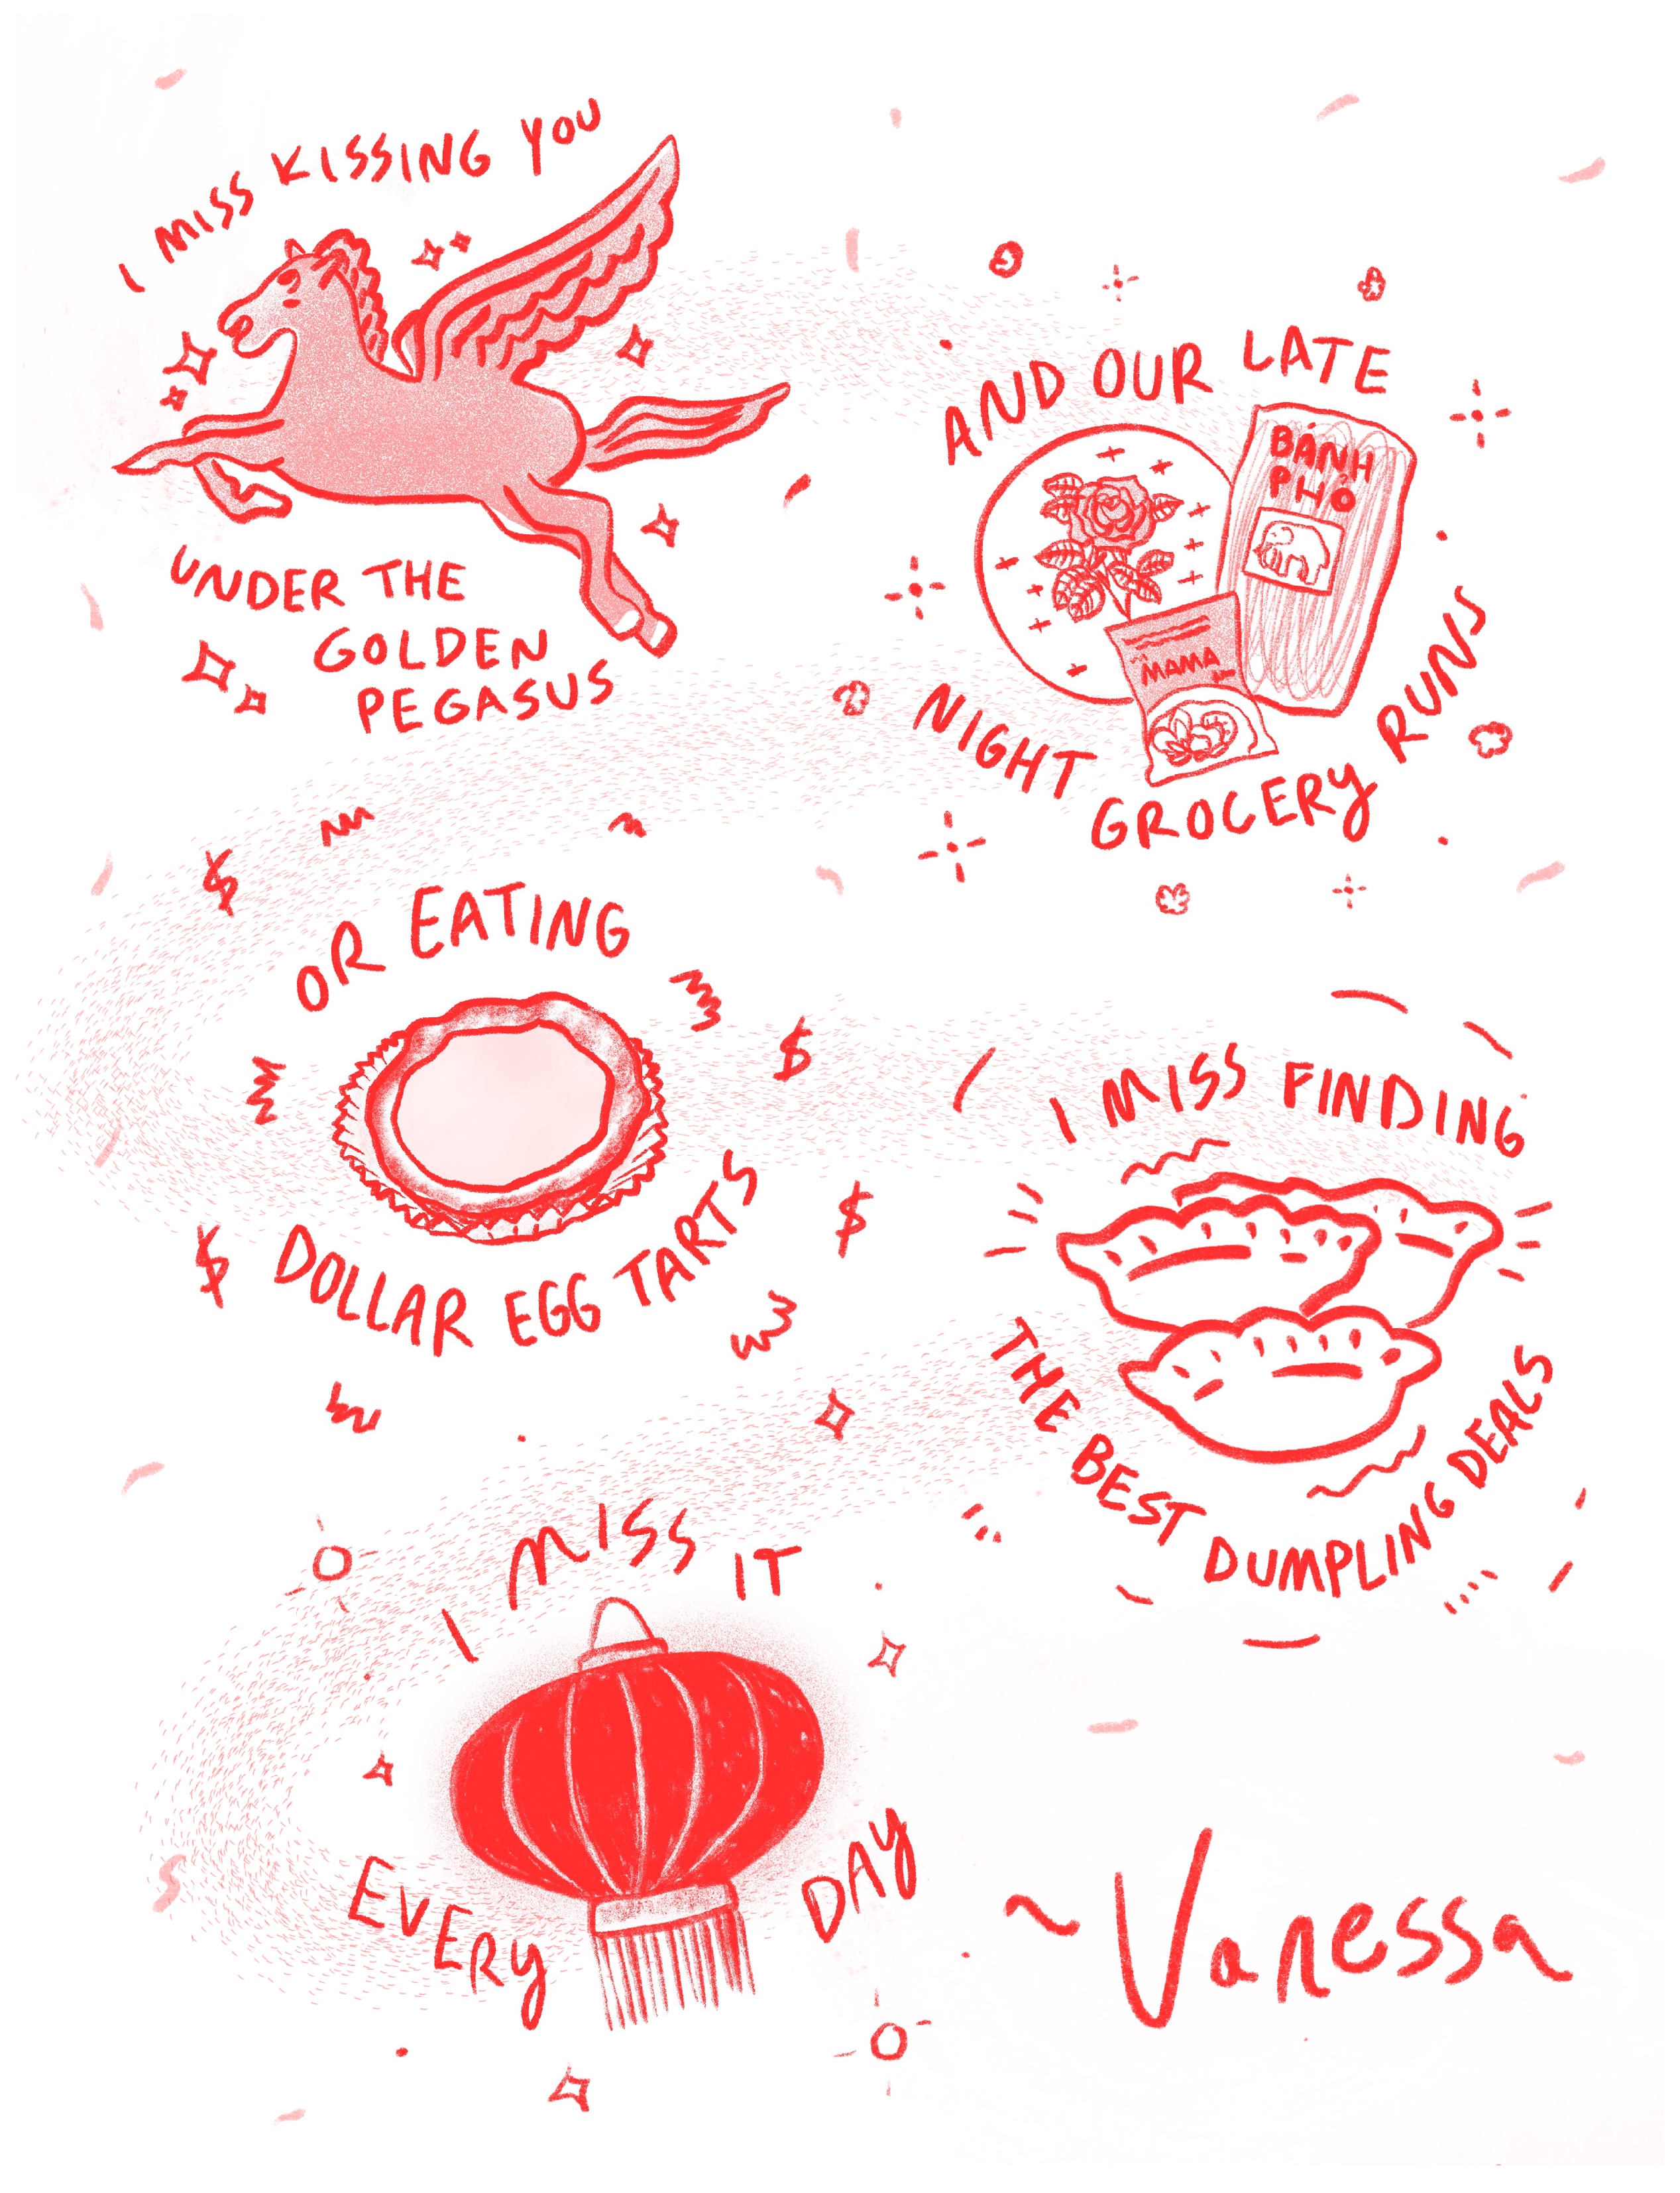 I MISS KISSING YOU
UNDER THE
GOLDEN
PEGASUS
AND OUR LATE
BÁNH
PHỞ
MAMA
NIGHT GROCERY RUNS
OR EATING
DOLLAR EGG TARTS
I MISS FINDING
THE BEST DUMPLING DEALS
I MISS IT
EVERY DAY
~Vanessa